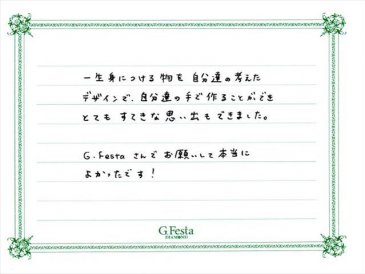 一生身につける物を自分達の考えた
デザインで、自分達の手で作ることができ
とてもすてきな思い出もできました。
G.Festaさんでお願いして本当に
よかったです！
G.Festa